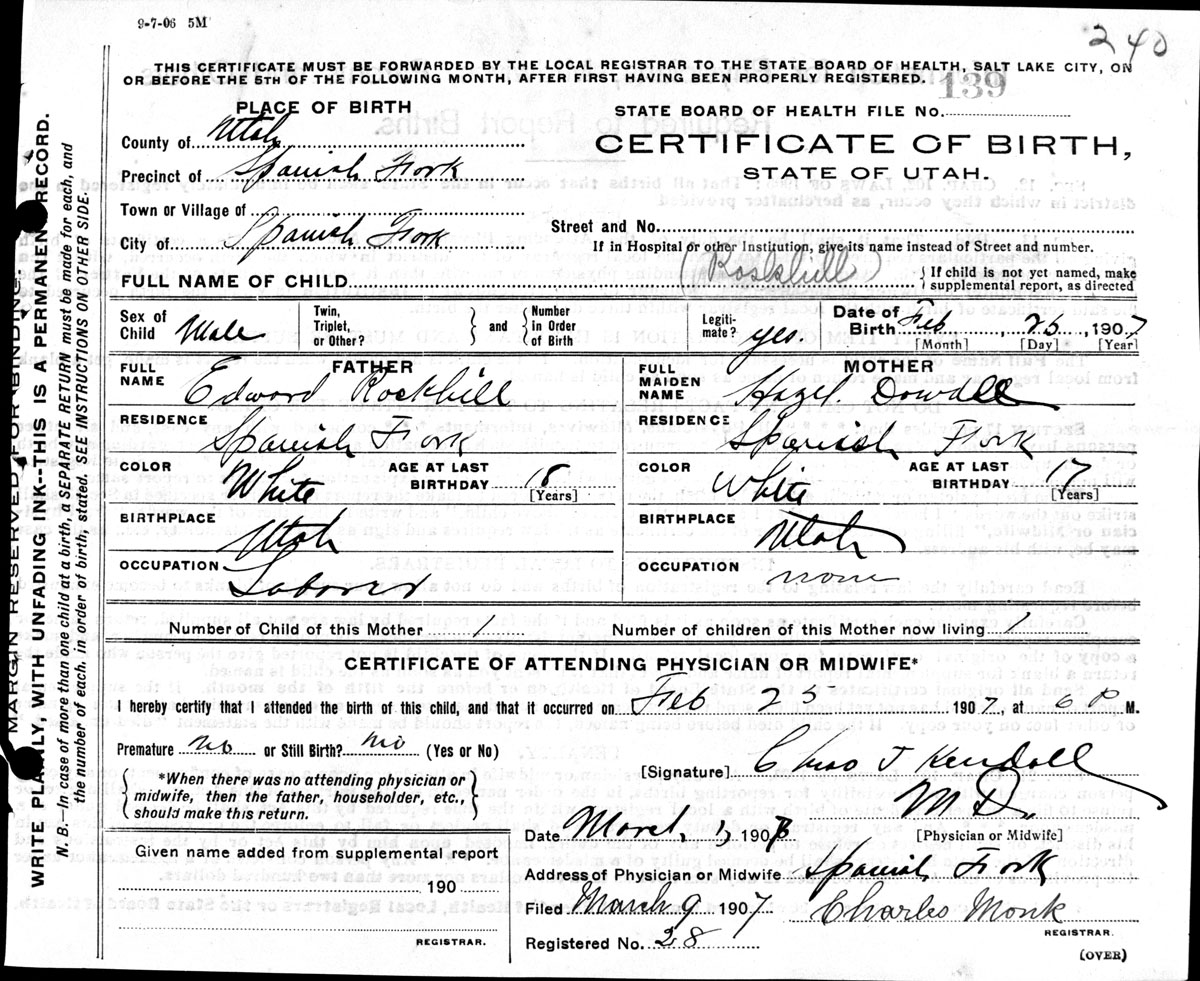 9-7-06 5M
240
THIS CERTIFICATE MUST BE FORWARDED BY THE LOCAL REGISTRAR TO THE STATE BOARD OF HEALTH, SALT LAKE CITY, ON
OR BEFORE THE 5TH OF THE FOLLOWING MONTH, AFTER FIRST HAVING BEEN PROPERLY REGISTERED.
139
PLACE OF BIRTH
STATE BOARD OF HEALTH FILE No.
County of Utah
CERTIFICATE OF BIRTH,
Precinct of Spanish Fork
STATE OF UTAH.
Town or Village of
Street and No.
City of Spanish Fork
If in Hospital or other Institution, give its name instead of Street and number.
FULL NAME OF CHILD (Roskhill) {If child is not yet named, make
supplemental report, as directed
Sex of Child Male
Twin, Triplet, or Other? } and { Number in Order of Birth
Legiti-mate? yes.
Date of Birth Feb, 25, 1907
[Month] [Day] [Year]
FATHER
MOTHER
FULL NAME Edward Rockhill
FULL MAIDEN NAME Hazel Dowdell
RESIDENCE Spanish Fork
RESIDENCE Spanish Fork
COLOR White AGE AT LAST BIRTHDAY 18 [Years]
COLOR White AGE AT LAST BIRTHDAY 17 [Years]
BIRTHPLACE Utah
BIRTHPLACE Utah
OCCUPATION Laborer
OCCUPATION none
Number of Child of this Mother 1
Number of children of this Mother now living 1
CERTIFICATE OF ATTENDING PHYSICIAN OR MIDWIFE*
I hereby certify that I attended the birth of this child, and that it occurred on Feb 25 1907, at 6 P M.
Premature no or Still Birth? no (Yes or No)
*When there was no attending physician or
midwife, then the father, householder, etc.,
should make this return.
[Signature] Chas J Kendall
M D.
[Physician or Midwife]
Date March 1, 1907
Given name added from supplemental report
Address of Physician or Midwife Spanish Fork
190
Filed March 9 1907 Charles Monk
REGISTRAR.
REGISTRAR.
Registered No. 28
(OVER)
MARGIN RESERVED FOR BINDING.
WRITE PLAINLY, WITH UNFADING INK--THIS IS A PERMANENT RECORD.
N. B.—In case of more than one child at a birth, a SEPARATE RETURN must be made for each, and
the number of each, in order of birth, stated. SEE INSTRUCTIONS ON OTHER SIDE.